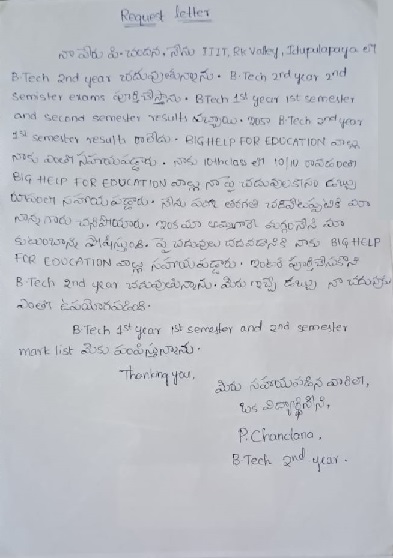 Request letter
నా పేరు పి. చందన. నేను IIIT, Rk Valley, Idupulapaya లో
B.Tech 2nd year చదువుతున్నాను. B.Tech 2nd year 2nd
semister exams పూర్తిచేస్తాను. BTech 1st year 1st semester
and second semester results వచ్చాయి. ఇంకా B.Tech 2nd year
1st semester results రాలేదు. BIG HELP FOR EDUCATION వాళ్ళు
నాకు ఎంతో సహాయపడ్డారు. నాకు 10th class లో 10/10 రావడంతో
BIG HELP FOR EDUCATION వాళ్ళు నా పై చదువులకోసం డబ్బు
సహాయపడ్డారు. నేను తరగతి
నాన్న గారు చనిపోయారు. ఇంక మా అమ్మగారే మా
కుటుంబాన్ని పోషిస్తుంది. పై చదువులు చదవడానికి నాకు BIG HELP
FOR EDUCATION వాళ్ళు సహాయపడ్డారు. ఇంటర్ పూర్తిచేసుకొని
B.Tech 2nd year చదువుతున్నాను. మీరు ఇచ్చే డబ్బు నా చదువుకు
ఎంతో ఉపయోగపడింది.
B.Tech 1st year 1st semester and 2nd semester
mark list మీకు పంపిస్తున్నాను.
Thanking you,
మీరు సహాయపడిన వారిలో,
ఒక విద్యార్థినిని,
P. Chandana,
B Tech 2nd year.